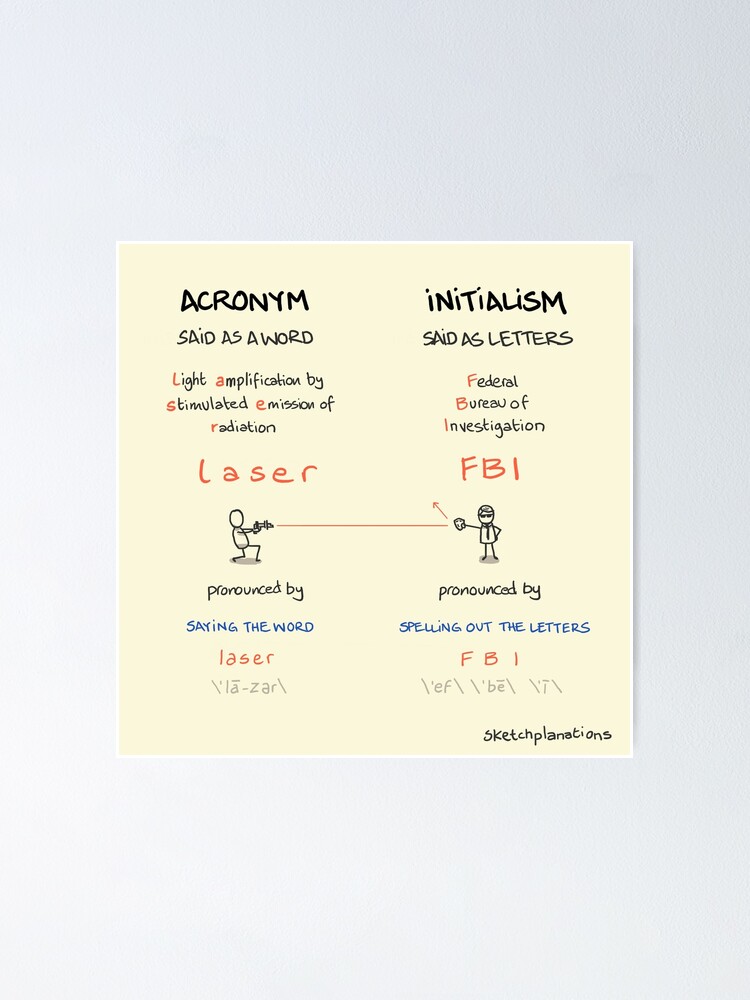 ACRONYM
SAID AS A WORD
Light amplification by
stimulated emission of
radiation
laser
pronounced by
SAYING THE WORD
laser
\ˈlā-zər\
INITIALISM
SAID AS LETTERS
Federal
Bureau of
Investigation
FBI
pronounced by
SPELLING OUT THE LETTERS
F B I
\ˈef\ \ˈbē\ \ˈī\
sketchplanations